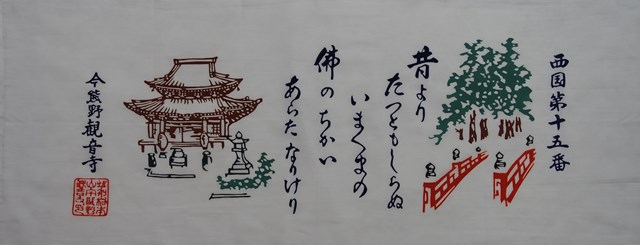 西国第十五番
昔より
たつともしらぬ
いまくまの
佛のちかい
あらたなりけり
今熊野観音寺